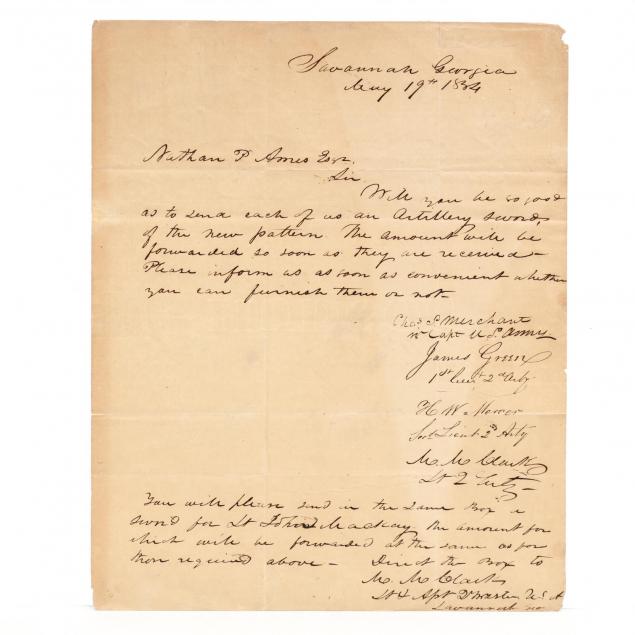 Savannah Georgia
May 19th 1834
Nathan P Ames Esqr.
Sir
Will you be so good
as to send each of us an Artillery sword,
of the new pattern. The amount will be
forwarded so soon as they are received—
Please inform us as soon as convenient whether
you can furnish them or not—
Chas. S. Merchant
Capt U.S. Army
James Green
1st Lieut 2d Arty
H. W.
Lieut 2d Arty
M. M. Clark
Lt 2 Arty—
You will please send in the same Box a
sword for Lt John Mackay the amount for
which will be forwarded at the same as for
those required above— Direct the Box to
M. M. Clark
Lt & U.S. A
Savannah